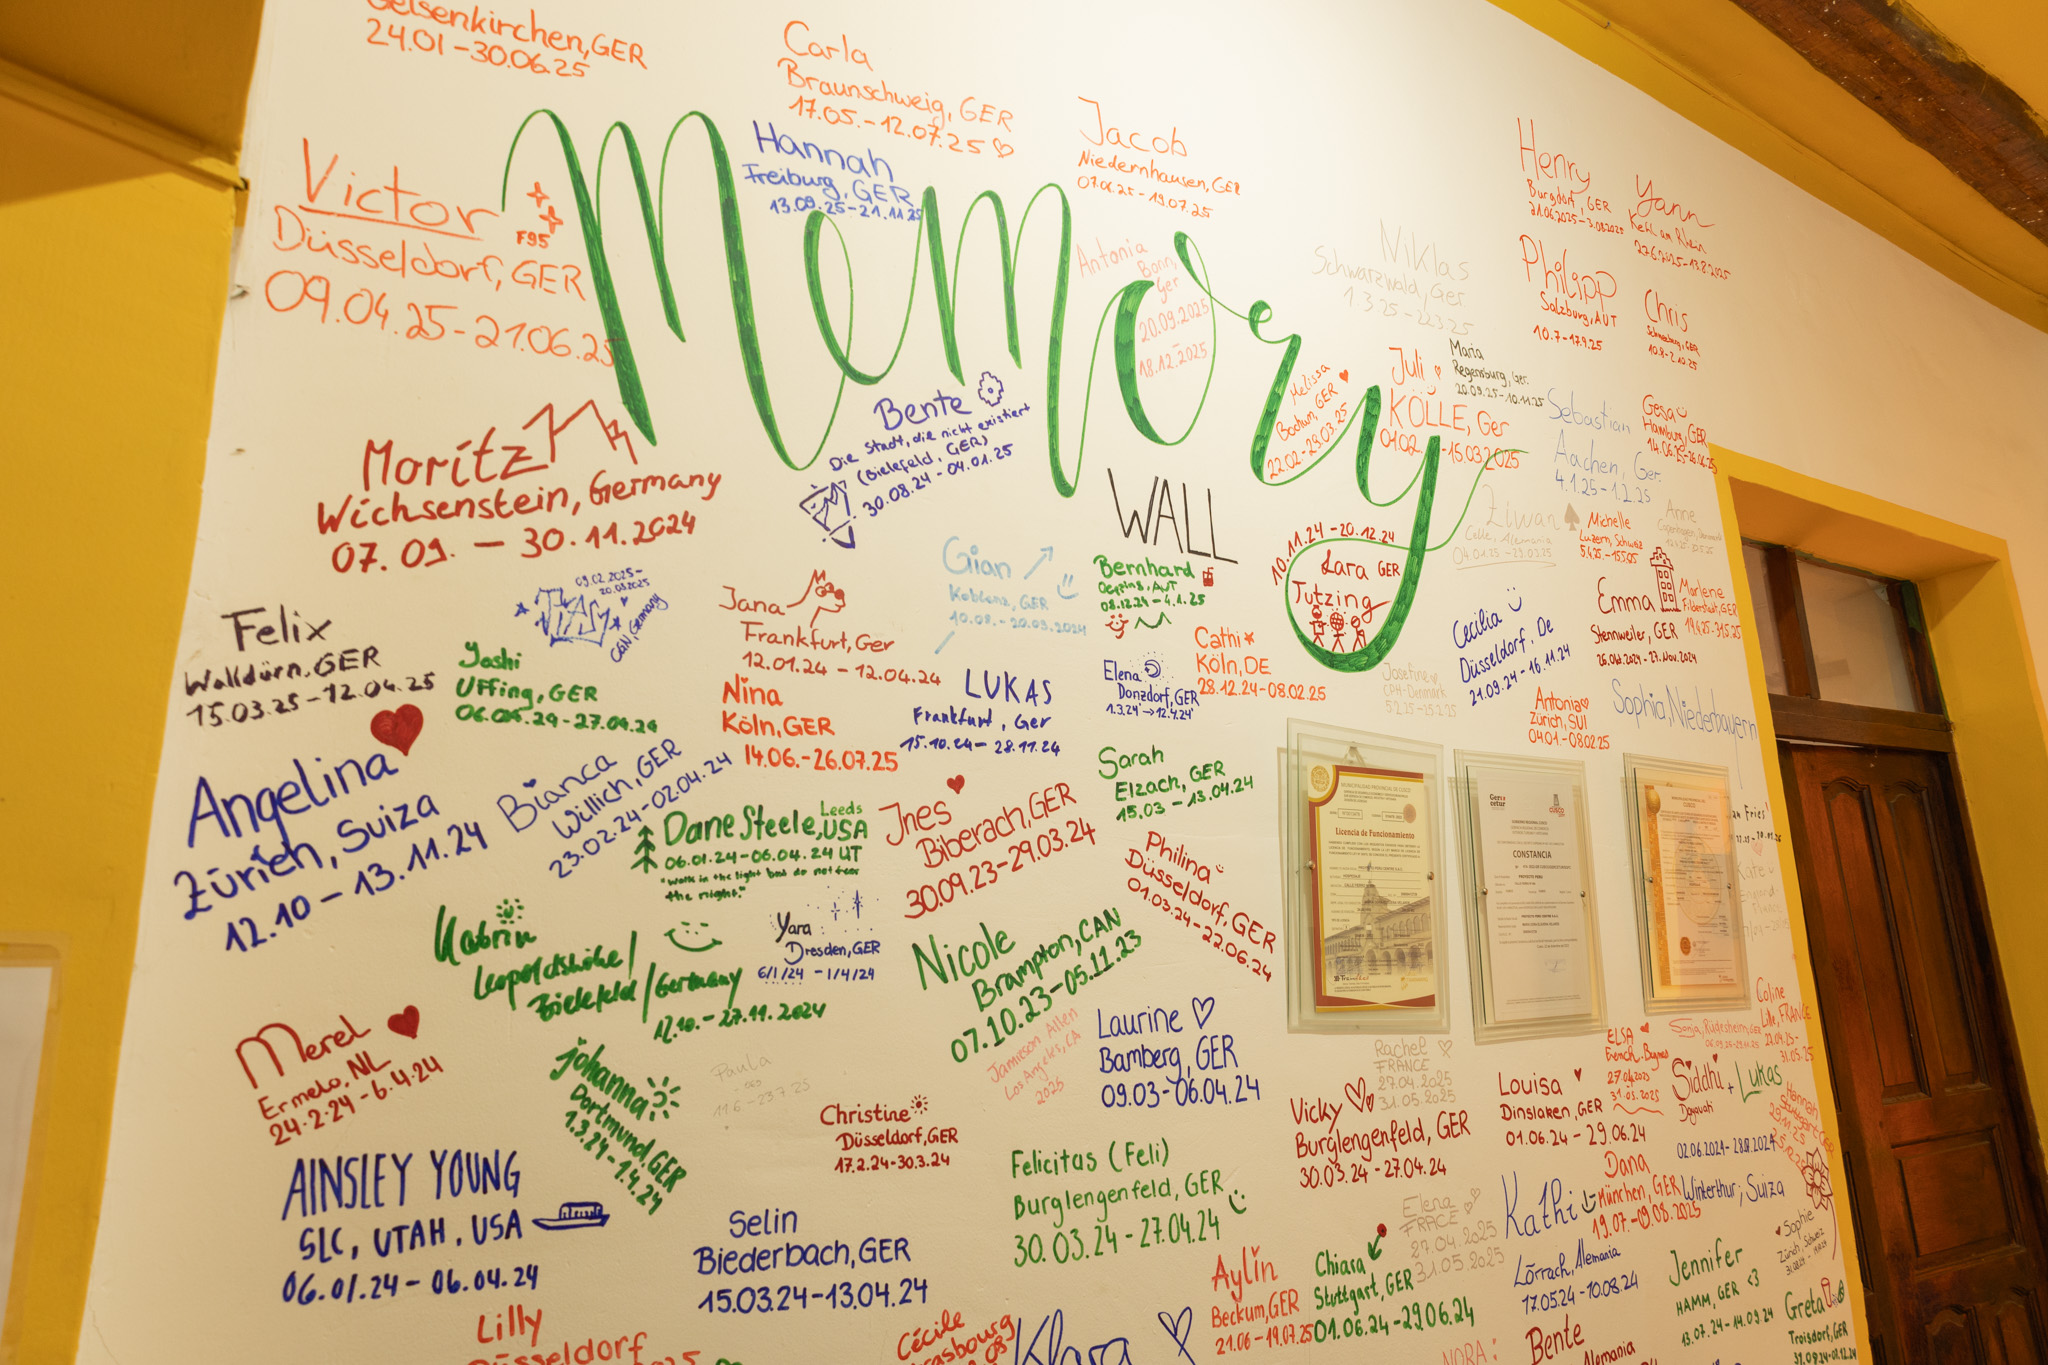 Gelsenkirchen, GER
24.01-30.06.25
Carla
Braunschweig, GER
17.05.-12.07.25
Hannah
Freiburg, GER
13.09.25-21.11.25
Jacob
Niedernhausen, GER
07.06.25-19.07.25
Henry
Burgdorf, GER
21.06.2025-3.08.2025
Yann
Kehl am Rhein
27.6.2025-13.8.2025
Victor
F95
Düsseldorf, GER
09.04.25-21.06.25
Memory
WALL
Antonia
Bonn,
Ger
20.09.2025
-
18.12.2025
Niklas
Schwarzwald, Ger.
1.3.25-22.3.25
Philipp
Salzburg, AUT
10.7-17.9.25
Chris
10.8-2.10.25
Moritz
Wichsenstein, Germany
07.09. - 30.11.2024
Bente
Die Stadt, die nicht existiert
(Bielefeld, GER)
30.08.24-04.01.25
Melissa
Bochum, GER
22.02-29.03.25
Juli
KÖLLE, Ger
01.02.-15.03.2025
Maria
Regensburg, Ger.
20.09.25-10.11.25
Sebastian
Aachen, Ger.
4.1.25-1.2.25
Gesa
Hamburg, GER
14.06.25-26.06.25
Ziwan
Celle, Alemania
04.01.25-29.03.25
Michelle
Luzern, Schweiz
5.4.25-15.5.05
Anne
10.11.24-20.12.24
Lara GER
Tutzing
Felix
Walldürn, GER
15.03.25-12.04.25
09.02.2025-
20.03.2025
CGN, Germany
Yoshi
Uffing, GER
Jana
Frankfurt, Ger
12.01.24-12.04.24
Gian
Koblenz, GER
10.08.-20.09.2024
Bernhard
08.12.24-4.1.25
Cathi
Köln, DE
28.12.24-08.02.25
Elena
Donzdorf, GER
1.3.24→12.4.24
Josefine
CPH-Denmark
Cecilia
Düsseldorf, De
21.09.24-16.11.24
Emma
Stennweiler, GER
26.Okt.2024-27.Nov.2024
Marlene
Filderstadt, GER
19.4.25-31.5.25
Antonia
Zürich, SUI
04.01-08.02.25
Sophia, Niederbayern
Nina
Köln, GER
14.06.-26.07.25
LUKAS
Frankfurt, Ger
15.10.24-28.11.24
Angelina
Zürich, Suiza
12.10-13.11.24
Bianca
Willich, GER
23.02.24-02.04.24
Leeds
Dane Steele, USA
06.01.24-06.04.24 UT
"Walk in the light and do not fear
the night."
Ines
Biberach, GER
30.09.23-29.03.24
Sarah
Elzach, GER
15.03-13.04.24
Philina
Düsseldorf, GER
01.03.24-22.06.24
MUNICIPALIDAD PROVINCIAL DE CUSCO
Licencia de Funcionamiento
CONSTANCIA
Katrin
Leopoldshöhe/
Bielefeld/Germany
12.10.-27.11.2024
Yara
Dresden, GER
6/1/24 - 1/4/24
Nicole
Brampton, CAN
07.10.23-05.11.23
Jamieson Allen
Los Angeles, CA
2025
Laurine
Bamberg, GER
09.03-06.04.24
Merel
Ermelo, NL
24.2.24-6.4.24
Johanna
Dortmund, GER
1.3.24-1.4.24
Paula
11.6-23.7.25
Christine
Düsseldorf, GER
17.2.24-30.3.24
Rachel
FRANCE
27.04.2025
31.05.2025
Vicky
Burglengenfeld, GER
30.03.24-27.04.24
Louisa
Dinslaken, GER
01.06.24-29.06.24
ELSA
27.04.2025
31.05.2025
Sonja, Rüdesheim, GER
Coline
Lille, FRANCE
31.05.25
Siddhi + Lukas
Winterthur, Suiza
Hannah
AINSLEY YOUNG
SLC, UTAH, USA
06.01.24-06.04.24
Selin
Biederbach, GER
15.03.24-13.04.24
Felicitas (Feli)
Burglengenfeld, GER
30.03.24-27.04.24
Elena
FRACE
27.04.2025
31.05.2025
Dana
München, GER
19.07-09.08.2025
Kathi
Lörrach, Alemania
17.05.24-10.08.24
Aylin
Beckum, GER
21.06-19.07.25
Chiara
Stuttgart, GER
01.06.24-29.06.24
Jennifer
HAMM, GER <3
13.07.24-14.09.24
Sophie
Zürich, Schweiz
Greta
Troisdorf, GER
Lilly
Düsseldorf
Cécile
Klara
NORA:
Bente
Alemania